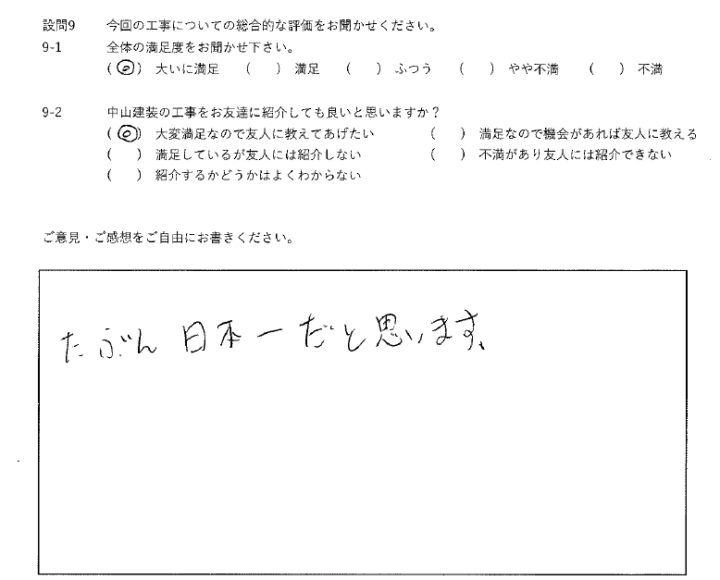 設問9 今回の工事についての総合的な評価をお聞かせください。
9-1 全体の満足度をお聞かせ下さい。
(◎) 大いに満足 ( ) 満足 ( ) ふつう ( ) やや不満 ( ) 不満
9-2 中山建装の工事をお友達に紹介しても良いと思いますか？
(◎) 大変満足なので友人に教えてあげたい ( ) 満足なので機会があれば友人に教える
( ) 満足しているが友人には紹介しない ( ) 不満があり友人には紹介できない
( ) 紹介するかどうかはよくわからない
ご意見・ご感想をご自由にお書きください。
たぶん 日本一だと思います、